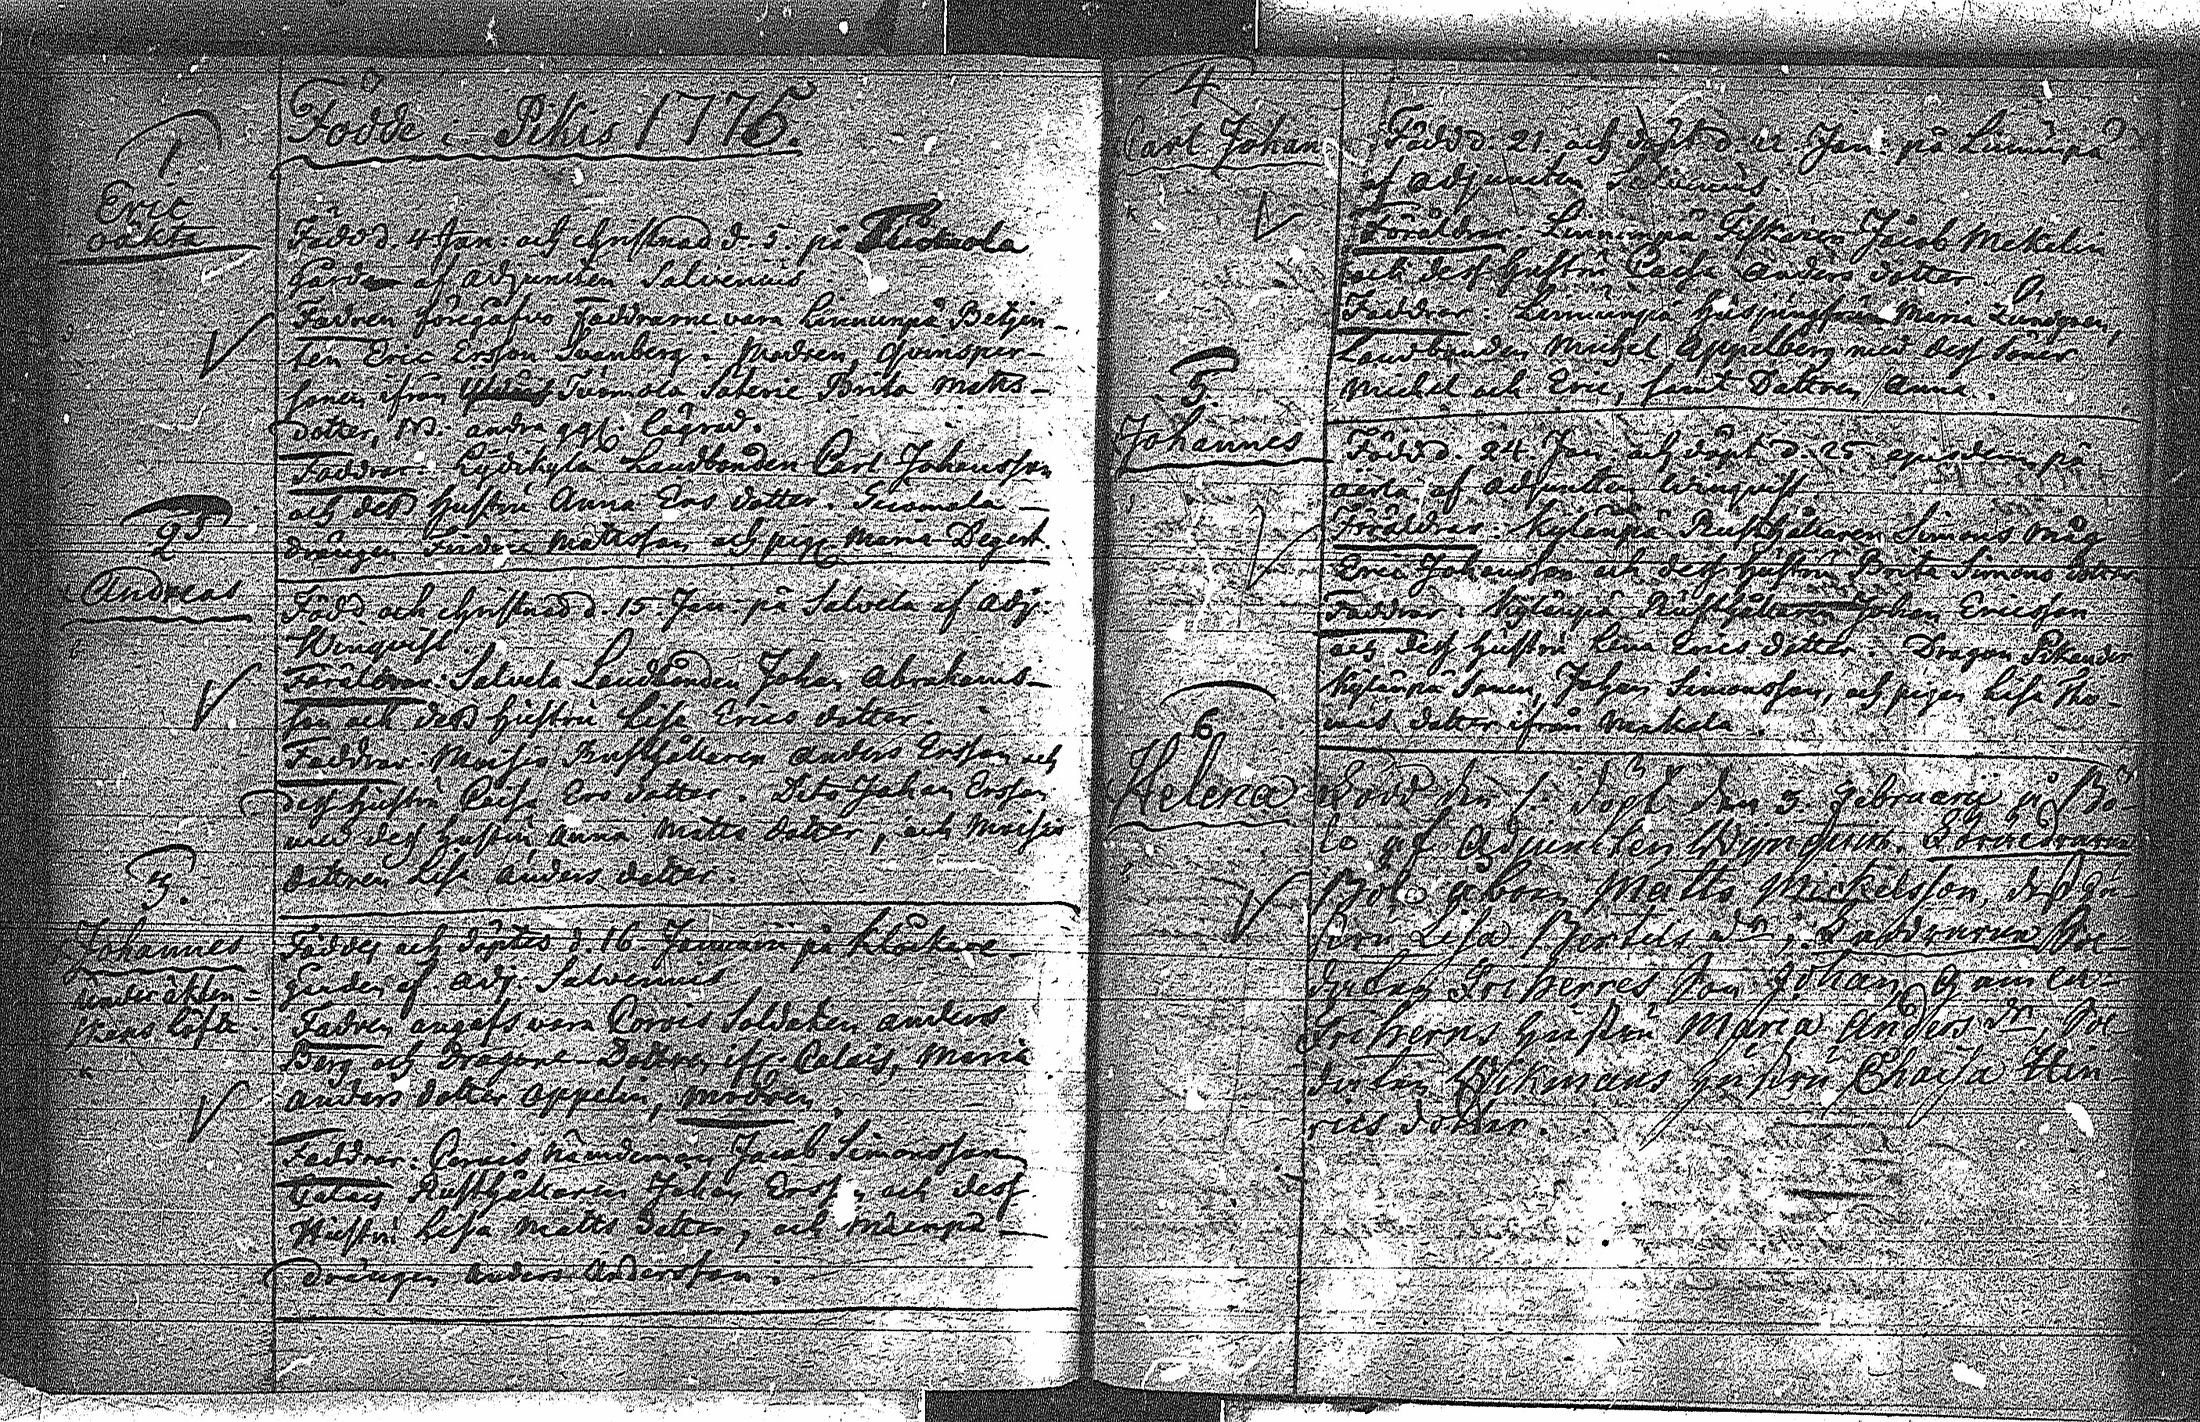 Födde i Pikis 1775.
1.
Eric
oäkta
Född d. 4 Jan: och christnad d. 5. på Tuomola
Gården af Adjuncten Salvenius
Fadren föregåfvo Faddrarne vara Linnunpä Betjen-
ten Eric Ersson Svanberg. Modren, qvinsper-
sonen ifrån Tuomola Saterie Brita Matts-
dotter, andra lägrad.
Faddrar: Landbonden Carl Johansson
och dess hustru Anna Ers dotter. Tuomola
drängen Matsson och pig. Maria Degert.
2
Andreas
Född och christnad d. 15. Jan. på Salvela af Adj:
Winquist.
Föräldrar: Salvela Landbonden Johan Abrahams-
son och dess hustru Lisa Erics dotter.
Faddrar: Moisio Rusthållaren Anders Ersson och
dess hustru Caisa Ers dotter. Dito Johan Ersson
med dess hustru Anna Matts dotter, och Moisio
dottren Lisa Anders dotter.
3.
Johannes
under äkten-
skaps löfte
Föddes och döptes d. 16 Januarii på Klockare-
Gården af Adj: Salvenius
Fadren angafs vara Corois Soldaten Anders
Berg och Dragone-Dottren ifr: Calais, Maria
Anders dotter Appelin, modren.
Faddrar: Corois Nämdeman Jacob Simonsson
Calais Rusthållaren Johan Erss. och dess
Hustru Lisa Matts dotter, och
drängen Anders Andersson.
4
Carl Johan
Född d. 21. och döpt d. 22. Jan. på Linnunpä
af Adjuncten Salvenius
Föräldrar: Linnunpä Fiskaren Jacob Mekelin
och dess hustru Caisa Anders dotter.
Faddrar: Linnunpä Maria Lundgren,
Landbonden Michel Appelberg med dess söner
Michel och Eric, samt Dottren Anna.
5.
Johannes
Född d. 24. Jan. och döpt d. 25 ejusdem på
af Adjuncten Winquist
Föräldrar: Kylänpä Rusthållaren Simons måg
Eric Johansson och dess hustru Brita Simons dotter
Faddrar: Kylänpä Johan Ericsson
och dess hustru Lena Erics dotter. Dragon
Kylänpä Sonen, Johan Simonsson, och pigan Lisa Tho-
mas dotter ifrån Makela.
6
Helena
född den 1. döpt den 3 Februarii i Bö-
le af Adjuncten Wynquist. Föräldrarne
Böle åbon Matts Mickelsson, dess hu-
stru Lisa Bertels dr, Faddrarne Sol-
daten Friherres Son Johan, Gamla
Friherns hustru Maria Anders dr, Sol-
daten Wikmans hustru Chaisa Hin-
rics dotter.